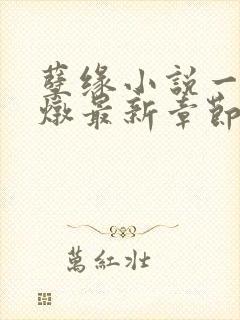 孽缘小説一
燉最新章節
萬紅壯